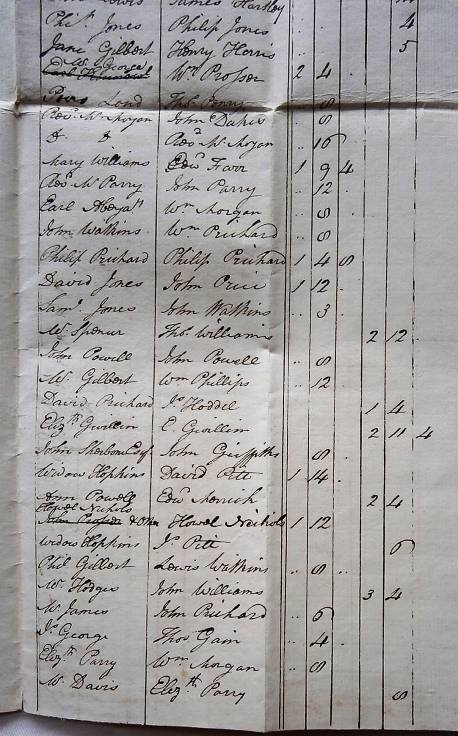 James Hartley
Phi.s Jones Philip Jones 4
Jane Gilbert Henry Harris .. 5
Mr. George Wm. Prosser 2 4 .
Poors Land Thos. Penry .. 8
Revd. Mr. Morgan John Dukes .. 8
Do. Do. Revd. Mr. Morgan .. 16
Mary Williams Edwd. Farr 1 9 4
Revd. Mr. Parry John Parry .. 12 .
Earl Abergay. Wm. Morgan .. 8
John Watkins Wm. Prichard .. 8
Philip Prichard Philip Prichard 1 4 8
David Jones John Price 1 12 .
Saml. Jones John Watkins .. 3 .
Mr. Spencer Thos. Williams 2 12 .
John Powell John Powell .. 8
Mr. Gilbert Wm. Phillips .. 12
David Prichard Js. Hoddil 1 4
Eliz.th Gwillim E. Gwillim 2 11 4
John Sherbon Esqr. John Griffiths .. 8
Widow Hopkins David Pitt 1 14 .
Ann Powell Edwd. Merrick 2 4
Howel Nichols
John Prosser & Othrs Howel Nichols 1 12
Widow Hopkins Js. Pitt 6
Phil Gilbert Lewis Watkins .. 8
Mr. Hodges John Williams 3 4
Mr. James John Prichard .. 6
Js. George Thos. Gain .. 4 .
Eliz.th Parry Wm. Morgan .. 8
Mr. Davis Eliz.th Parry 8